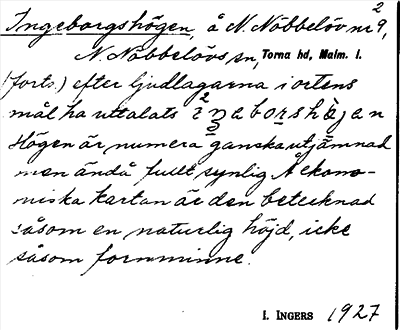 2
Ingeborgshögen, å N. Nöbbelöv nr 9,
N. Nöbbelövs sn, Torna hd, Malm. l.
(forts.) efter ljudlagarna i ortens
mål ha uttalats
Högen är numera ganska utjämnad
men ändå fullt synlig. Å ekono-
miska kartan är den betecknad
såsom en naturlig höjd, icke
såsom fornminne.
I. INGERS 1927